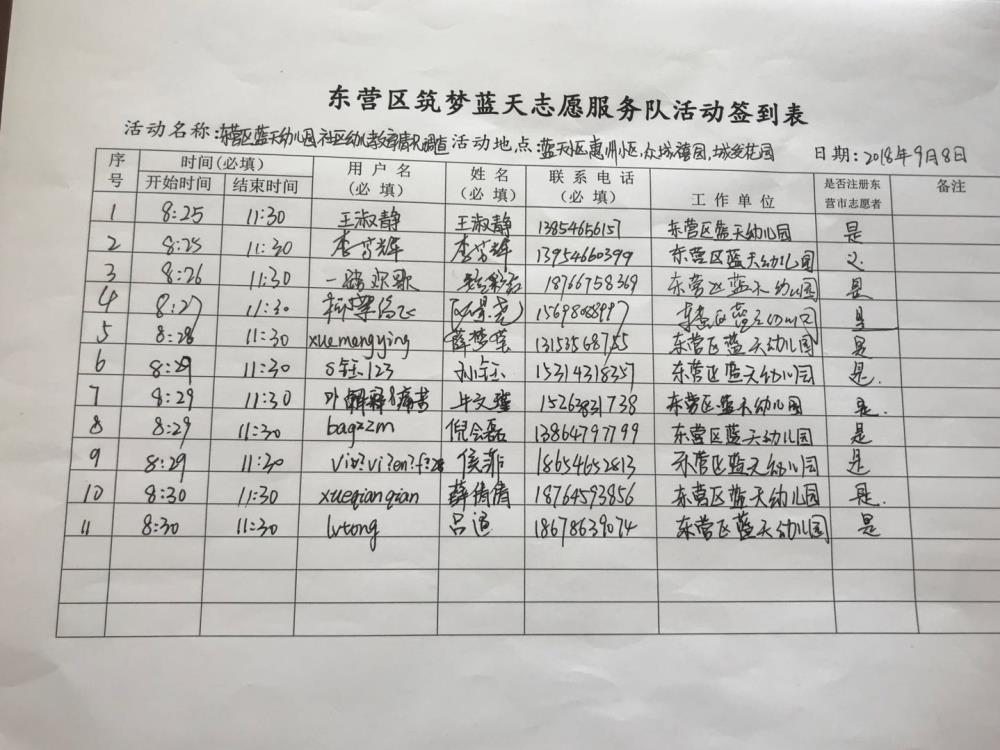 东营区筑梦蓝天志愿服务队活动签到表
活动名称:东营区蓝天幼儿园社区幼儿教育情况调查 活动地点:蓝天小区,惠州小区,众城禧园,城发花园 日期:2018年9月8日
序号 时间(必填) 用户名(必填) 姓名(必填) 联系电话(必填) 工作单位 是否注册东营市志愿者 备注
开始时间 结束时间
1 8:25 11:30 王淑静 王淑静 13854656157 东营区蓝天幼儿园 是
2 8:25 11:30 李芳辉 李芳辉 13954660399 东营区蓝天幼儿园
3 8:26 11:30 一路欢歌 18766758369 东营区蓝天幼儿园 是
4 8:27 11:30 东营区蓝天幼儿园 是
5 8:28 11:30 xuemengying 薛梦莹 东营区蓝天幼儿园 是
6 8:29 11:30 s钰123 孙钰 15314318357 东营区蓝天幼儿园 是.
7 8:29 11:30 15263831738 东营区蓝天幼儿园 是.
8 8:29 11:30 bagzzm 倪会磊 13864797799 东营区蓝天幼儿园 是
9 8:29 11:30 侯菲 18654652813 东营区蓝天幼儿园 是
10 8:30 11:30 xueqianqian 薛倩倩 18764593856 东营区蓝天幼儿园 是.
11 8:30 11:30 lvtong 吕 18678639074 东营区蓝天幼儿园 是